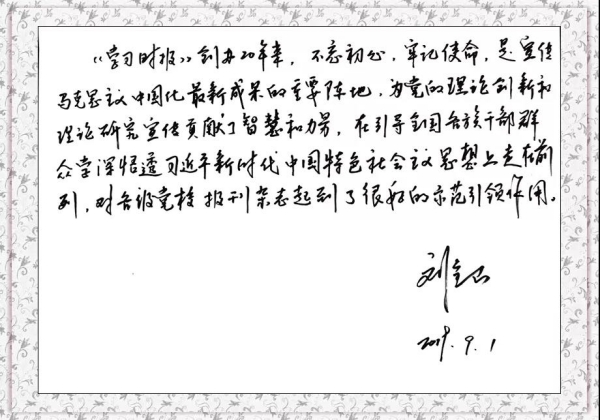 《学习时报》创办20年来，不忘初心，牢记使命，是宣传
马克思主义中国化最新成果的重要阵地，为党的理论创新和
理论研究宣传贡献了智慧和力量，在引导全国各族干部群
众学深悟透习近平新时代中国特色社会主义思想上走在前
列，对各级党校报刊杂志起到了很好的示范引领作用。
2019.9.1